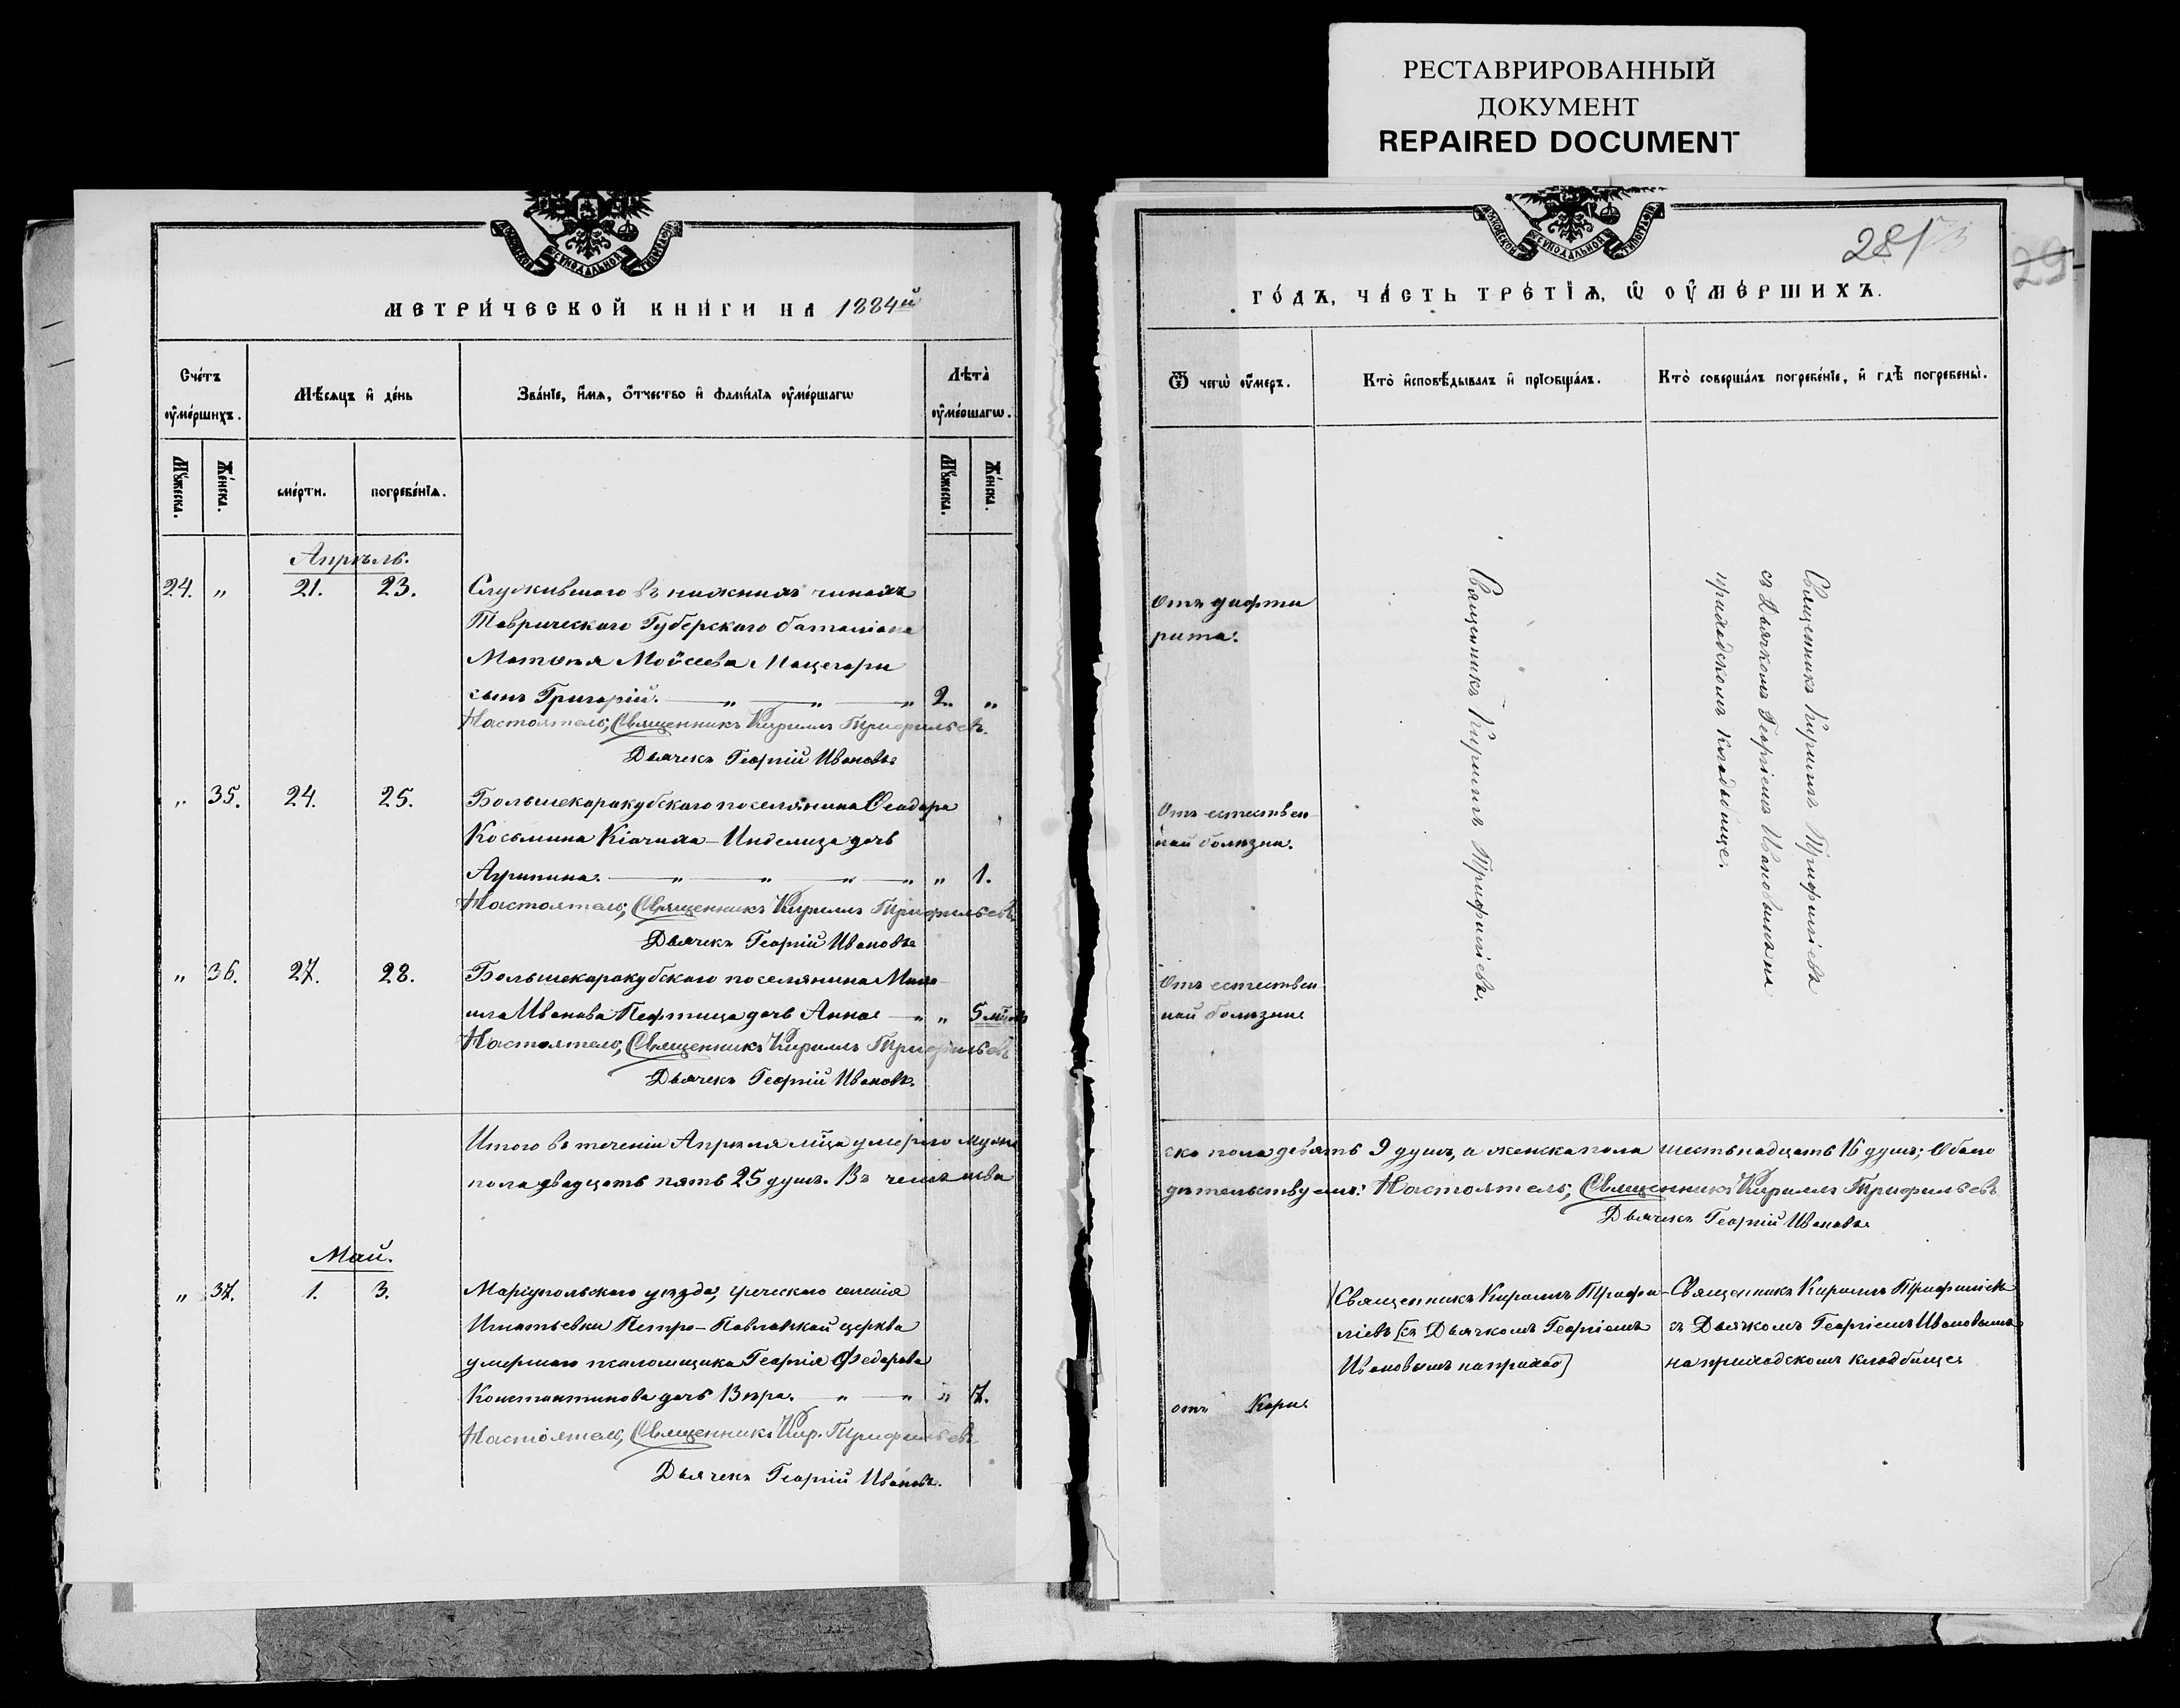 РЕСТАВРИРОВАННЫЙ
ДОКУМЕНТ
REPAIRED DOCUMENT
МЕТРИ́ЧЕСКОЙ КНИ́ГИ НА 1884й
Сче́тъ ᲂу҆ме́ршихъ.
Мѣ́сяцъ и҆ де́нь
Зва́нїе, и҆́мя, ѻ҆́тчество и҆ фами́лїя ᲂу҆ме́ршагѡ
Лѣта̀ ᲂу҆ме́ршагѡ.
Мꙋ́жеска.
Же́нска.
сме́рти.
погребе́нїѧ.
Мꙋ́жеска.
Же́нска.
Апрѣль.
24. " 21. 23. Служившаго въ нижнихъ чинахъ
Таврическаго Губерскаго баталіона
Матѳея Моѵсеева Мацегори
сынъ Григорій. — " — " — " 2. "
Настоятель, Священникъ Кириллъ Трифильевъ.
Дьячекъ Георгій Ивановъ
" 35. 24. 25. Большекаракубскаго поселянина Ѳеодора
Косьмина Кіачика-Инжелиза дочь
Агрипина. — " — " — " — " " 1.
Настоятель, Священникъ Кириллъ Трифильевъ
Дьячекъ Георгій Ивановъ
" 36. 27. 28. Большекаракубскаго поселянина Миха-
ила Иванова Пефтица дочь Анна — " " 5 мѣс.
Настоятель, Священникъ Кириллъ Трифильевъ
Дьячекъ Георгій Ивановъ.
Итого въ теченіи Апрѣля мѣца умерло мужс
пола двадцать пять 25 душъ. Въ чемъ свѣ
Май.
" 37. 1. 3. Маріупольскаго уѣзда, греческаго селенія
Игнатьевки Петро-Павловской церкви
умершаго псаломщика Георгія Федорова
Константинова дочь Вѣра. " — " " 7.
Настоятель, Священникъ Кир. Трифильевъ
Дьячекъ Георгій Ивановъ.
281
29
ГО́ДЪ, ЧА́СТЬ ТРЕ́ТЇѦ, Ѡ҆ ОУ҆МЕ́РШИХЪ.
Ѿ чегѡ̀ ᲂу҆́меръ.
Кто̀ и҆сповѣ́дывалъ и҆ прїѡбща́лъ.
Кто̀ соверша́лъ погребе́нїе, и҆ гдѣ̀ погребены̀.
Отъ дифте
рита.
Отъ естествен-
ной болѣзни.
Отъ естествен-
ной болѣзни
Священникъ Кириллъ Трифиліевъ.
Священникъ Кириллъ Трифиліевъ
съ Дьячкомъ Георгіемъ Ивановымъ на
приходскомъ кладбище.
ска пола девять 9 душъ, а женска пола шестьнадцать 16 душъ; Обоего
дѣтельствуемъ: Настоятель, Священникъ Кириллъ Трифильевъ
Дьячекъ Георгій Ивановъ
Священникъ Кириллъ Трифи-
ліевъ [съ Дьячкомъ Георгіемъ
Ивановымъ на приход]
Священникъ Кириллъ Трифиліевъ
съ Дьячкомъ Георгіемъ Ивановымъ
на приходскомъ кладбище
отъ Кори.